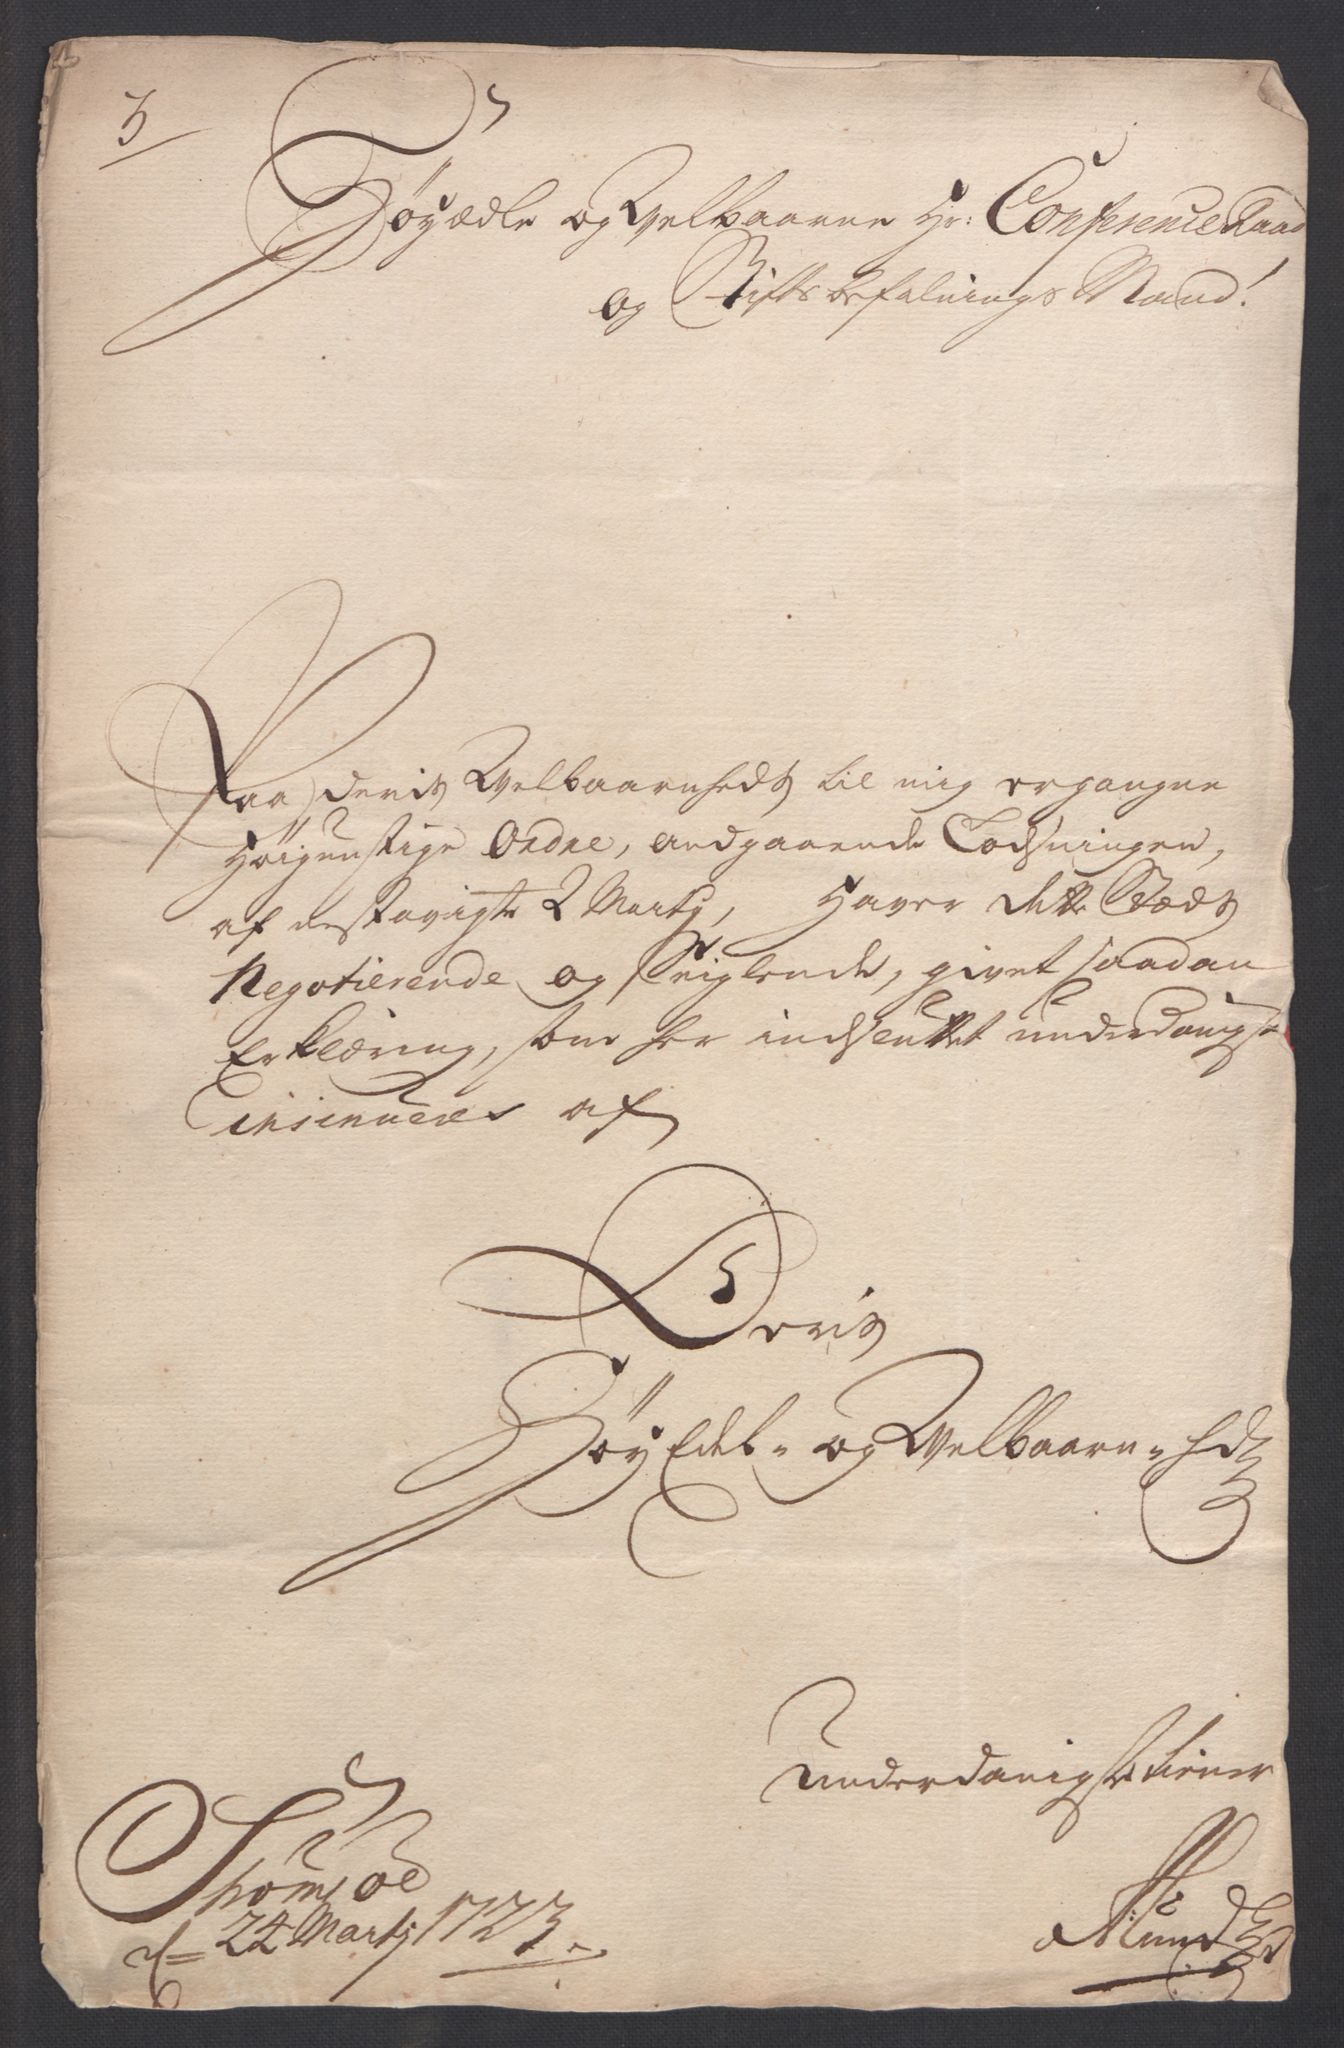 3
Höyædle og Welbaarne Hr: ConferenceRaad
og Stiftsbefalnings Mand!
Paa Deris Welbaarnheds til mig ergangne
Høigunstige Ordre, andgaaende Lodsningen,
af destovigte 2 Martij, Haver dette Stæds
Negotierende og Seiglende, givet saadan
Erklæring, som her indsluttet underdanigst
insinueres af
Deris
Höy Edel- og Welbaarn-heds
underdanigste tiener
Thomsøe
d= 24 Martij 1723
Mund